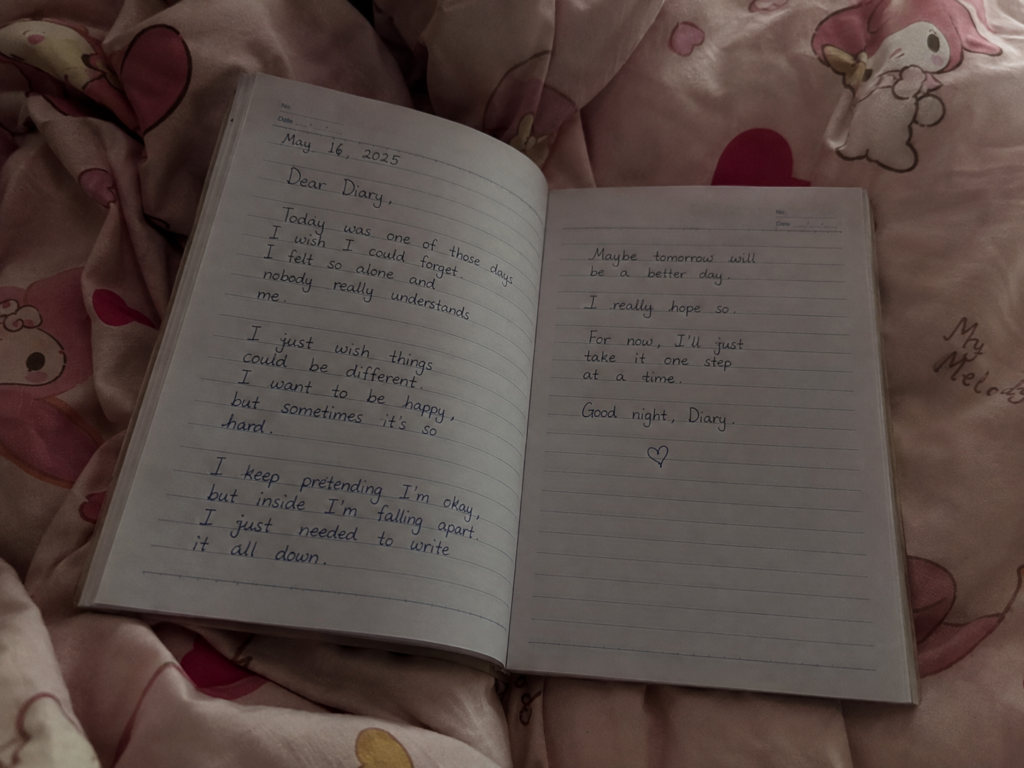 No.
Date
May 16, 2025
Dear Diary,
Today was one of those days
I wish I could forget.
I felt so alone and
nobody really understands
me.
I just wish things
could be different.
I want to be happy,
but sometimes it's so
hard.
I keep pretending I'm okay,
but inside I'm falling apart.
I just needed to write
it all down.
No.
Date
Maybe tomorrow will
be a better day.
I really hope so.
For now, I'll just
take it one step
at a time.
Good night, Diary.
My
Melody